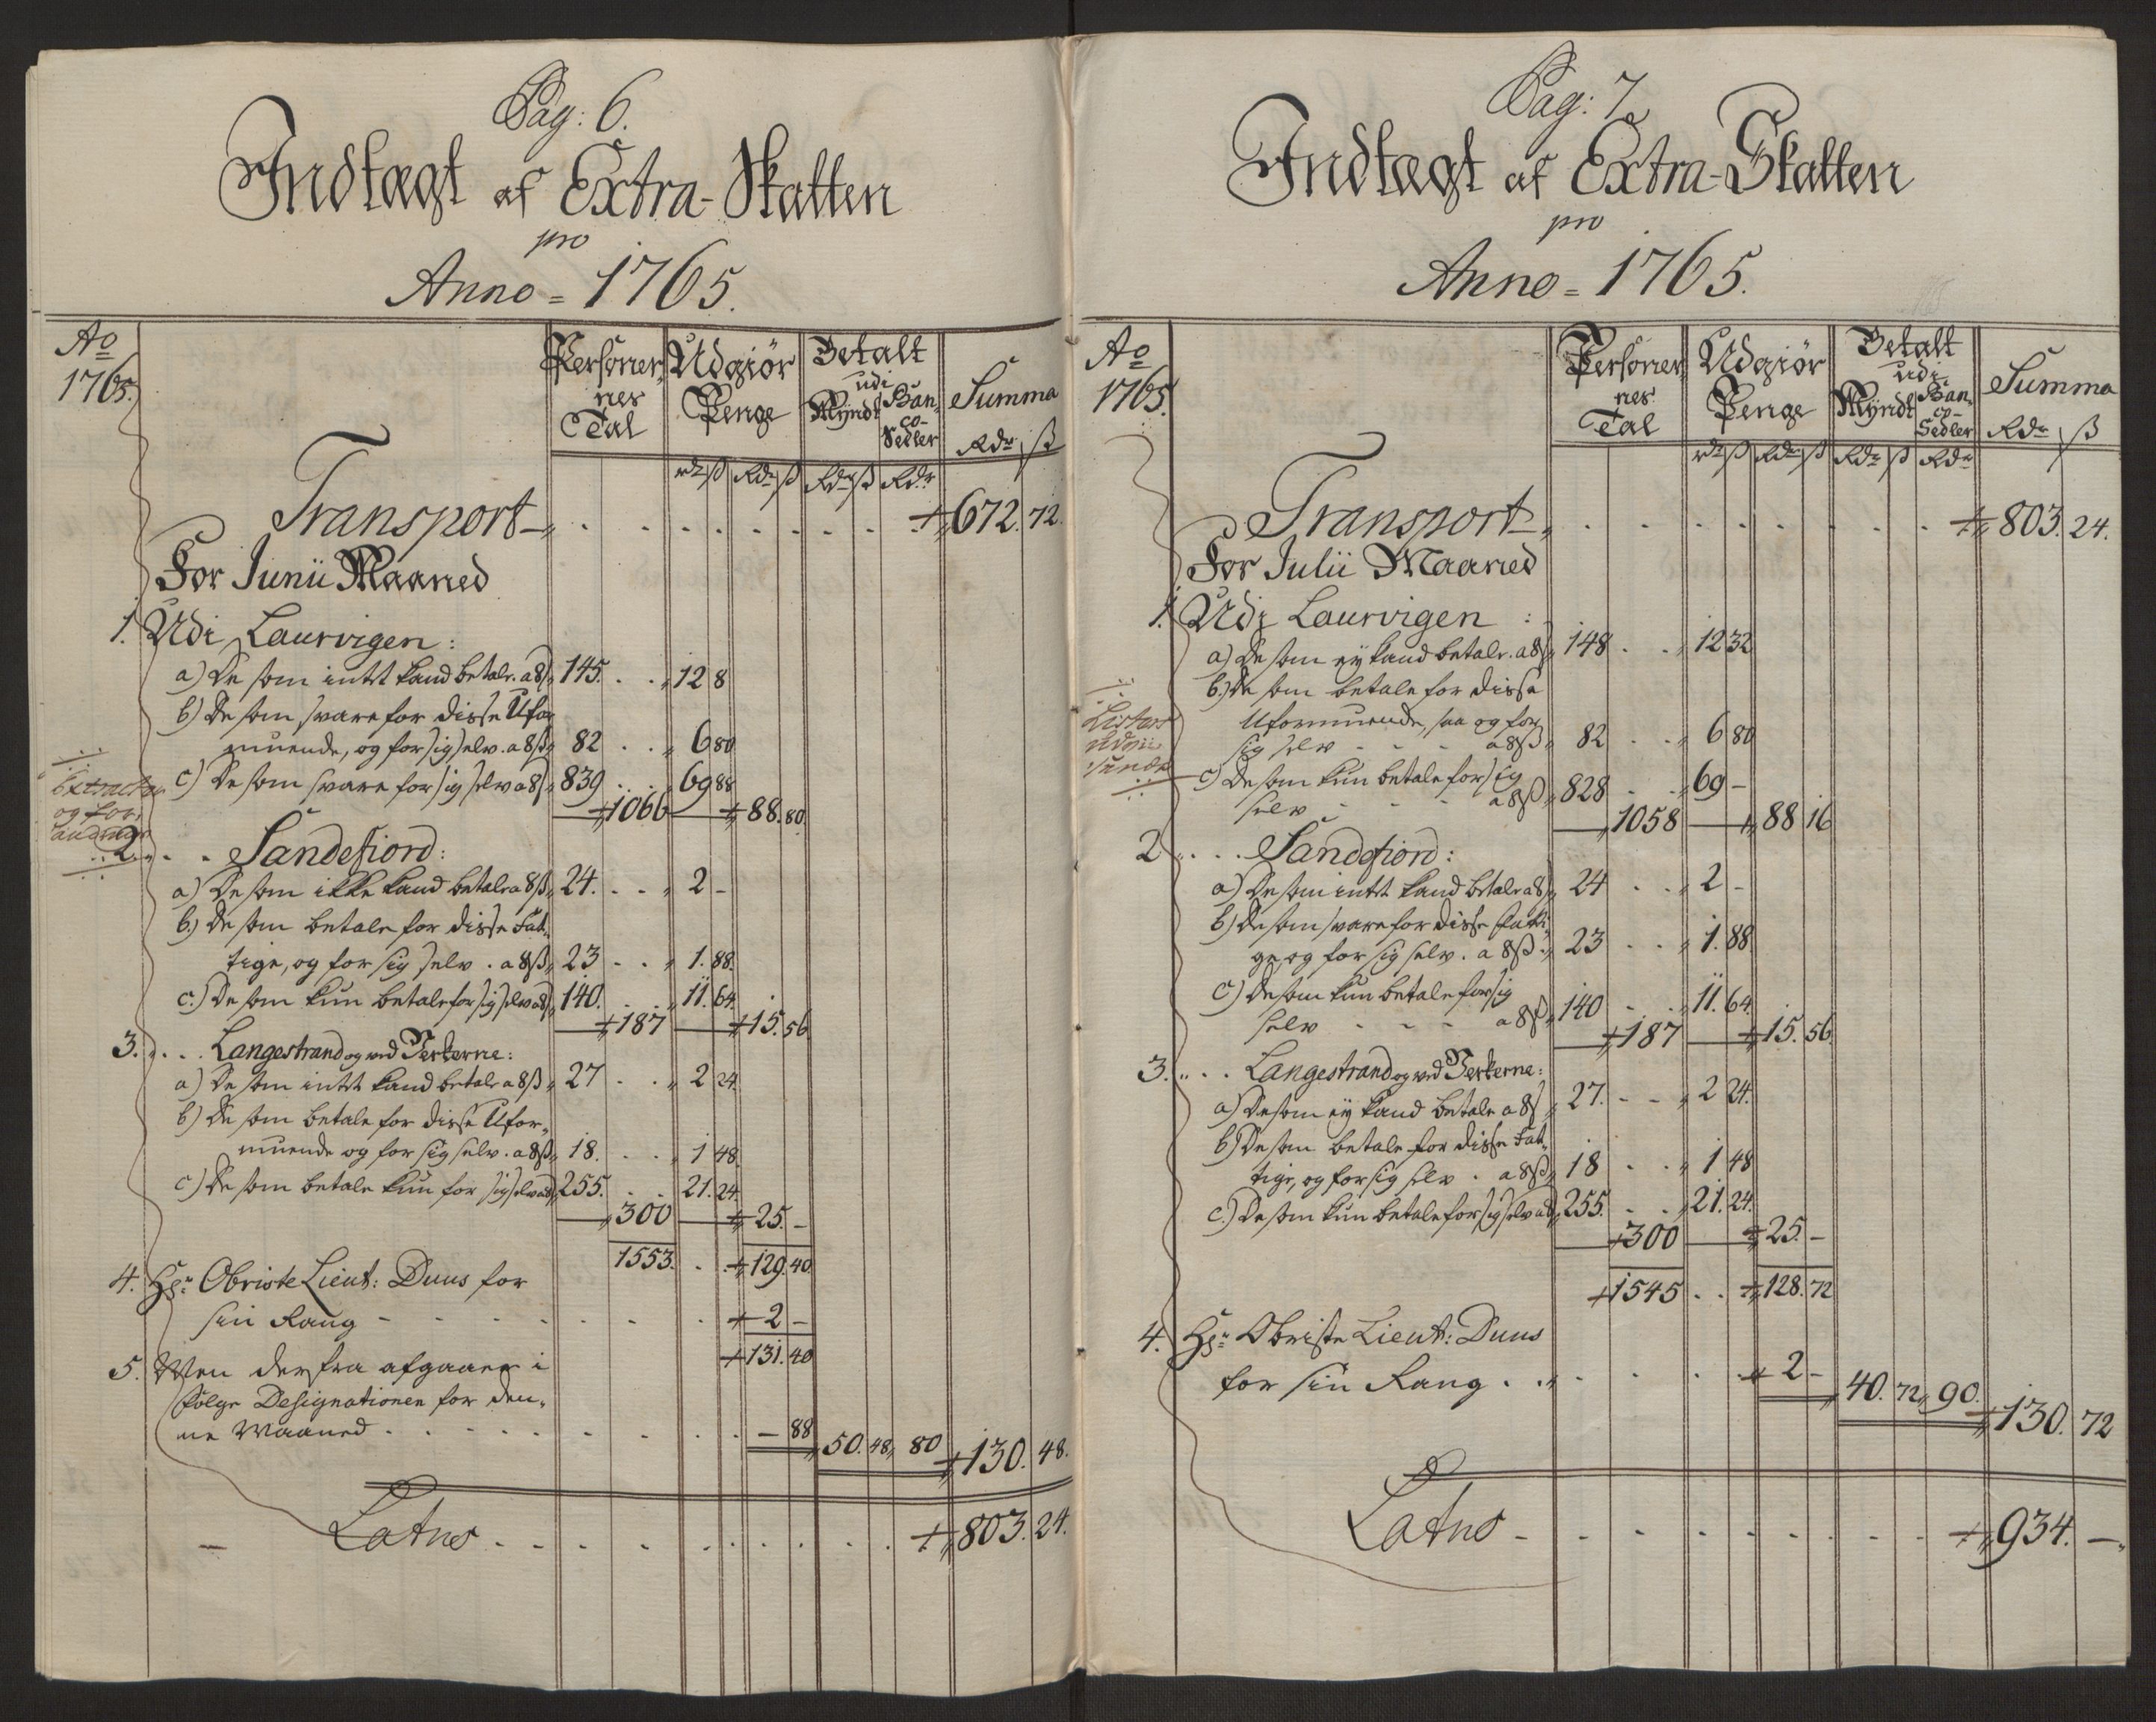 Pag: 6.
Indtægt af Extra-Skatten
pro
Anno = 1765.
Ao 1765.
Personer, nes Tal
Udgiör Penge
Betalt udi Myndt Ban, co- Sedler
Summa
Rdr ß
rdr ß Rdr ß Rdr ß Rdr
Transport - „ . . . . . . . . „ 672. 72.
For Junii Maaned
1. Udi Laurvigen:
a) De som intet kand betale. a 8ß „ 145. . . „ 12 8
b) De som svare for disse Ufor
muende, og for sig selv. a 8ß „ 82 . . „ 6 80
c) De som svare for sig selv a 8ß „ 839 . . „ 69 88
„ 1066 „ 88. 80.
Extracten
og for
2. . . Sandefiord:
a) De som ikke kand betale a 8ß „ 24. . . „ 2 -
b.) De som betale for disse Fat„
tige, og for sig selv . a 8ß „ 23 . . „ 1. 88.
c.) De som kun betale for sig selv a 8ß „ 140. . . „ 11. 64.
„ 187 „ 15. 56
3. . . . Langestrand og ved Verkerne:
a) De som intet kand betale a 8ß „ 27 . . „ 2 24.
b) De som betale for disse Ufor„
muende og for sig selv. a 8ß „ 18. . . „ 1 48.
c) De som betale kun for sig selv a 8ß „ 255. . . 21. 24.
„ 300 „ 25. -
1553. . . „ 129. 40.
4. Hr: Obriste Lieut: Duus for
sin Rang - - - - - - - „ 2 -
„ 131. 40
5. Men derfra afgaaer i
følge Designationen for den„
ne Maaned . . . . . . . . . - 88
„ 50. 48 „ 80 „ 130. 48.
Latus . . . . . . . . . . . „ 803. 24.
Pag: 7.
Indtægt af Extra-Skatten
pro
Anno = 1765.
Ao 1765.
Personer, nes Tal
Udgiör Penge
Betalt udi Myndt Ban, co- Sedler
Summa
Rdr ß
rdr ß Rdr ß Rdr ß Rdr
Transport - „ . . . . . . . . „ 803. 24.
For Julii Maaned
1. Udi Laurvigen :
a) De som ey kand betale. a 8ß „ 148 . . „ 12 32
b.) De som betale for disse
Uformuende, saa og for
sig selv - - - a 8ß „ 82 . . „ 6 80
c) De som kun betale for sig
selv - - - a 8ß „ 828 . . „ 69 -
„ 1058 „ 88 16
2 . . . Sandefiord:
a) De som intet kand betale a 8ß „ 24 . . „ 2 -
b) De som svare for disse Fatti„
ge, og for sig selv. a 8ß „ 23 . . „ 1. 88.
c) De som kun betale for sig
selv - - - a 8ß „ 140 . . „ 11. 64.
„ 187 „ 15. 56
3. . . . Langestrand og ved Verkerne:
a) De som ey kand betale a 8ß „ 27. - - „ 2 24.
b) De som betale for disse Fat„
tige, og for sig selv . a 8ß „ 18 . . „ 1 48
c.) De som kun betale for sig selv a 8ß „ 255. . . „ 21. 24.
„ 300 „ 25. -
„ 1545 . . „ 128. 72
4. Hr: Obriste Lieut: Duus
for sin Rang . . . . . . . „ 2 -
„ 40. 72 „ 90. „ 130. 72
Latus - - - - - - - - - „ 934. -